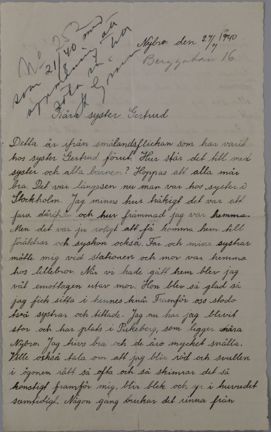 No 752
som 21/40 med
Nybro den 27/7 1940
Berggatan 16
Kära syster Gertrud
Detta är ifrån smålandsflickan som har varit
hos syster Gertrud förut. Hur står det till med
syster och alla barnen? Hoppas att alla mår
bra. Det var längesen nu man var hos syster i
Stockholm. Jag minns hur tråkigt det var att
fara därifr. och hur främmad jag var hemma.
Men det var ju roligt att få komma hem till
föräldrar och syskon också. Far och mina systrar
mötte mig vid stationen och mor var hemma
hos lillebror. När vi hade gått hem blev jag
väl emottagen utav mor. Hon blev så glad så
jag fick sitta i hennes knä. Framför oss stodo
två systrar och tittade. Jag nu har jag blivit
stor och har plats i Pukeberg, som ligger nära
Nybro. Jag trivs bra och de äro mycket snälla.
Ville också tala om att jag blir röd och svullen
i ögonen rätt så ofta och så skimrar det så
konstigt framför mig, blir blek och yr i huvudet
samtidigt. Någon gång brukar det rinna från